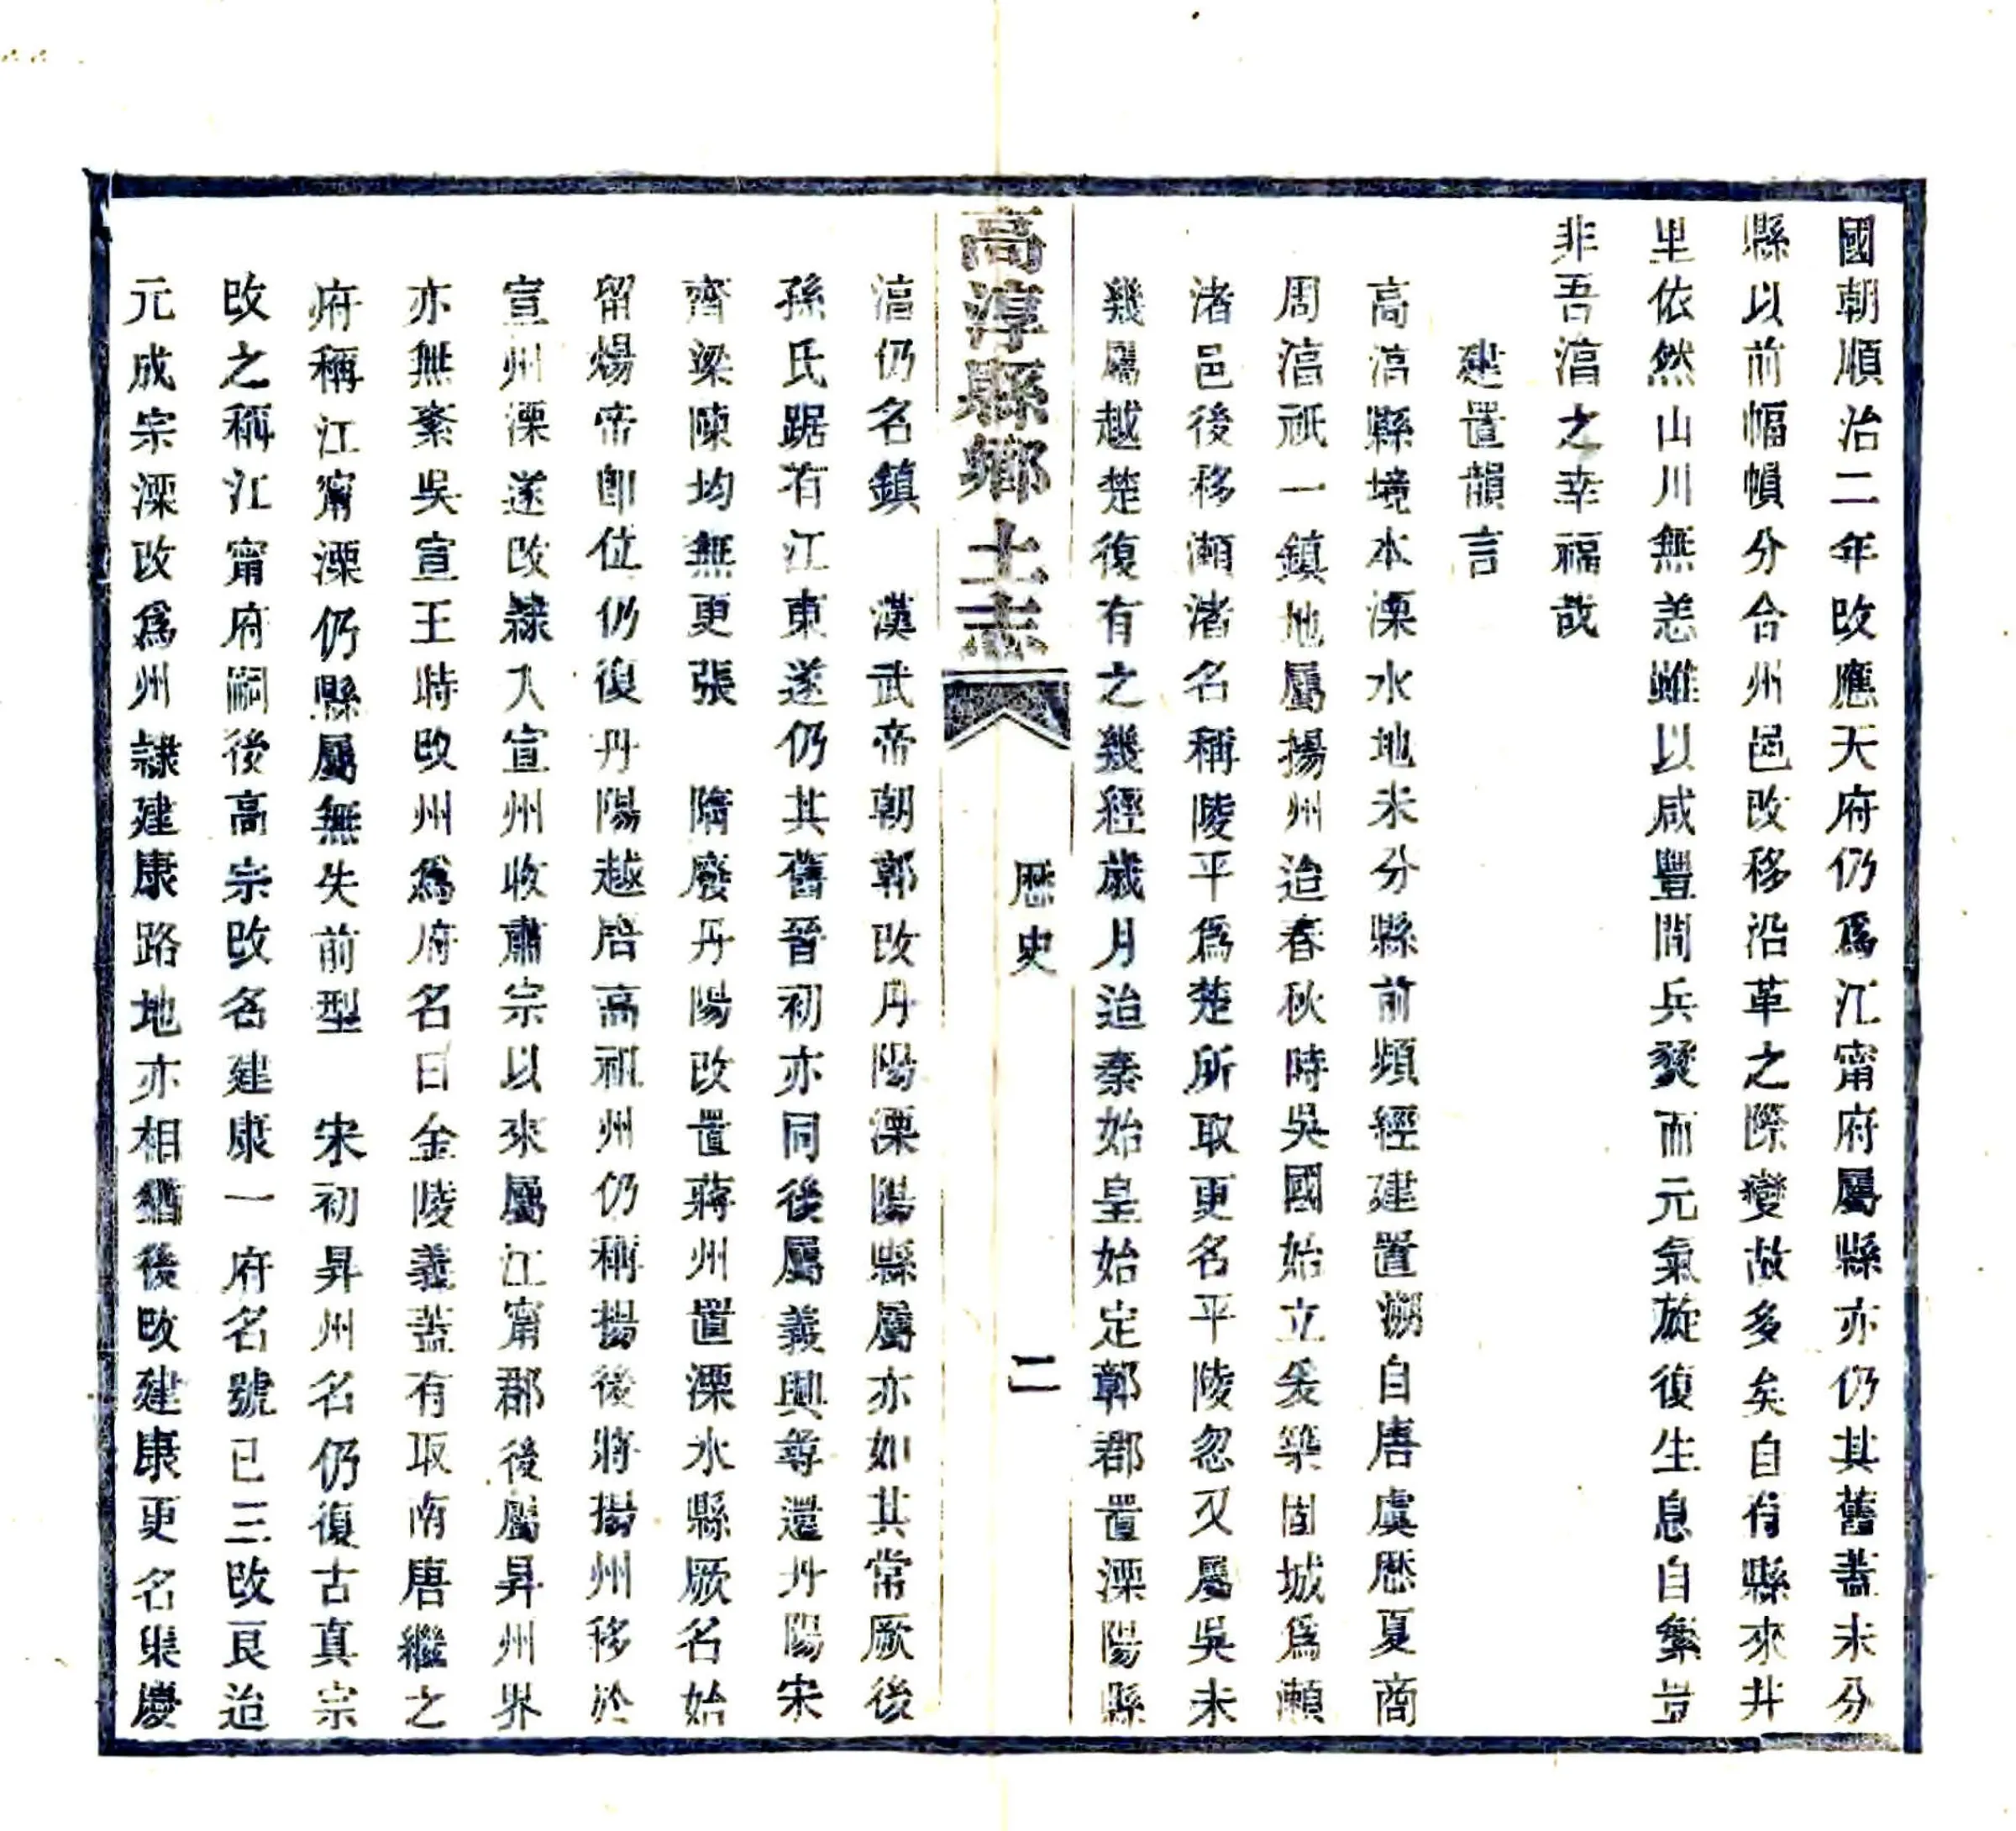 國朝順治二年改應天府仍爲江甯府屬縣亦仍其舊蓋未分
縣以前幅幀分合州邑改移沿革之際變故多矣自有縣來井
里依然山川無恙雖以咸豐間兵燹而元氣旋復生息自繁豈
非吾湻之幸福哉
建置韻言
高湻縣境本溧水地未分縣前頻經建置溯自唐虞歷夏商
周湻祇一鎮地屬揚州迨春秋時吳國始立爰築固城爲瀨
渚邑後移瀨渚名稱陵平爲楚所取更名平陵忽又屬吳未
幾屬越楚復有之幾經歲月迨秦始皇始定鄣郡置溧陽縣
高淳縣鄉土志
歷史
二
湻仍名鎮 漢武帝朝鄣改丹陽溧陽縣屬亦如其常厥後
孫氏踞有江東遂仍其舊晉初亦同後屬義興尋還丹陽宋
齊梁陳均無更張 隋廢丹陽改置蔣州置溧水縣厥名始
留煬帝卽位仍復丹陽越唐高祖州仍稱揚後將揚州移於
宣州溧遂改隸入宣州收肅宗以來屬江甯郡後屬昇州界
亦無紊吳宣王時改州爲府名曰金陵義蓋有取南唐繼之
府稱江甯溧仍縣屬無失前型 宋初昇州名仍復古真宗
改之稱江甯府嗣後高宗改名建康一府名號已三改良迨
元成宗溧改爲州隷建康路地亦相猶後改建康更名集慶